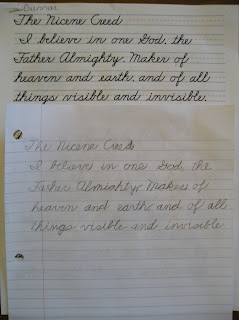 The Nicene Creed
I believe in one God, the
Father Almighty, Maker of
heaven and earth, and of all
things visible and invisible.
The Nicene Creed
I believe in one God, the
Father Almighty, Maker of
heaven and earth, and of all
things visible and invisible